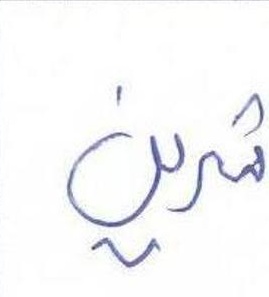 تمرين